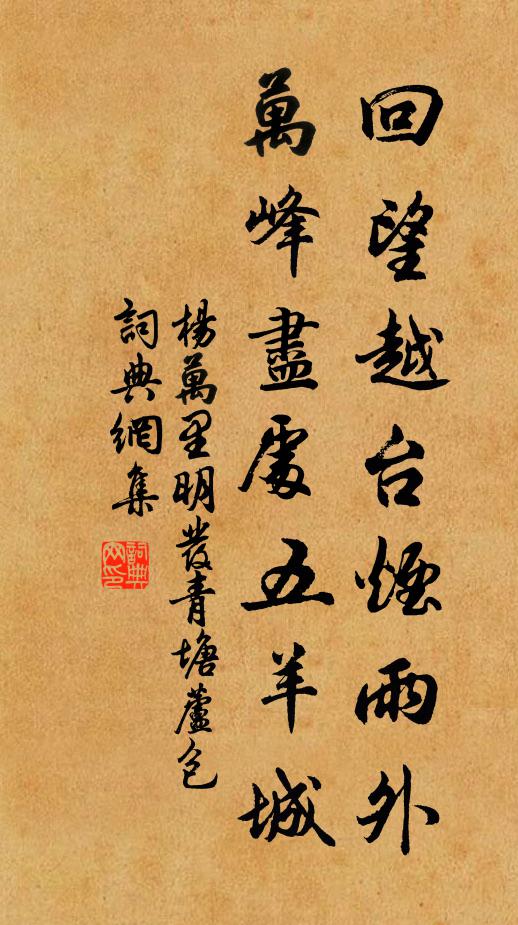 回望越台煙雨外
萬峰盡處五羊城
楊萬里明發青塘蘆包
詞典網集
詞典網印